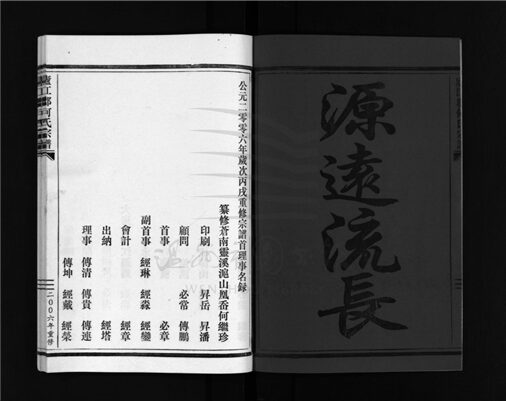 源遠流長
公元二零零六年歲次丙戌重修宗譜首理事名錄
纂修 蒼南靈溪滬山鳳岙何繼珍
印刷 昇岳 昇潘
顧問 必常 傳鵬
首事 必章
副首事 經琳 經淼 經鑾
會計 經章
出納 經塔
理事 傳清 傳貴 傳連
傳坤 經戴 經榮
廬江郡何氏宗譜
二00六年重修